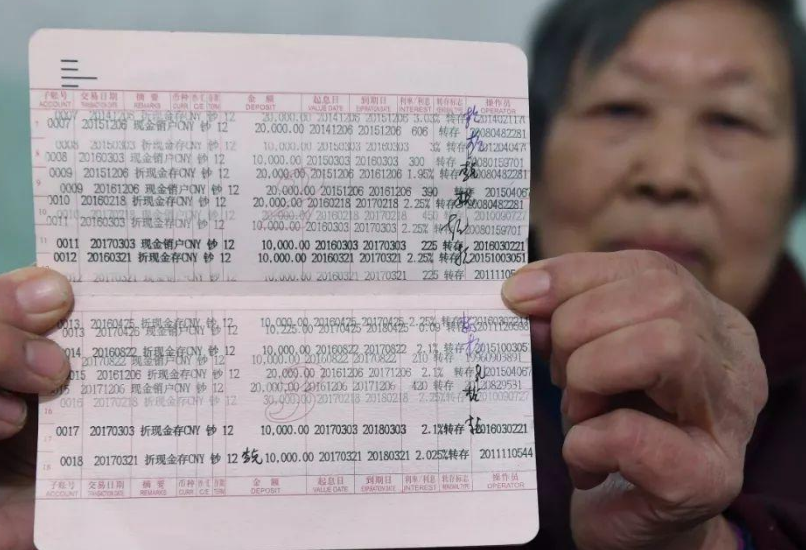 子帐号 交易日期 摘要 币种 金额 起息日 到期日 利率/利息 转存标志 操作员
ACCOUNT REMARKS CURR DEPOSIT VALUE DATE INTEREST OPERATOR
0007 20141206 折现金存CNY 钞 12 20,000.00 20141206 20151206 3.03% 转存
0007 20151206 现金销户CNY 钞 12 20,000.00 20141206 20151206 606 转存 20080482281
0008 20150303 折现金存CNY 钞 12 10,000.00 20150303 20160303 转存
0008 20160303 现金销户CNY 钞 12 10,000.00 20150303 20160303 300 转存 20080159701
0009 20151206 折现金存CNY 钞 12 20,000.00 20151206 20161206 1.95% 转存 20080482281
0009 20161206 现金销户CNY 钞 12 20,000.00 20151206 20161206 390 转存 201504067
0010 20160218 折现金存CNY 钞 12 20,000.00 20160218 20170218 2.25% 转存 20080482281
现金销户CNY 钞 12 20160218 20170218 450 转存 2010090727
0011 20160303 折现金存CNY 钞 12 10,000.00 20160303 20170303 2.25% 转存 20080159701
0011 20170303 现金销户CNY 钞 12 10,000.00 20160303 20170303 225 转存 2016030221
0012 20160321 折现金存CNY 钞 12 10,000.00 20160321 20170321 2.25% 转存 20151003051
0012 20170321 现金销户CNY 钞 12 10,000.00 20160321 20170321 225 转存
0013 20160425 折现金存CNY 钞 12 10,000.00 20160425 20170425 2.25% 转存
0013 20170425 现金销户CNY 钞 12 10,225.00 20170425 20180425 转存
0014 20160822 折现金存CNY 钞 12 10,000.00 20160822 20170822 2.1% 转存 2015100305
20170822 现金销户CNY 钞 12 10,000.00 20160822 20170822 210 转存
0015 20161206 折现金存CNY 钞 12 20,000.00 20161206 20171206 2.1% 转存 201504067
20171206 现金销户CNY 钞 12 20,000.00 20161206 20171206 420 转存
0016 20170218 折现金存CNY 钞 12 30,000.00 20170218 20180218 2.25% 转存 2010090727
0017 20170303 折现金存CNY 钞 12 10,000.00 20170303 20180303 2.1% 转存 2016030221
0018 20170321 折现金存CNY 钞 12 10,000.00 20170321 20180321 2.025% 转存 2011110544
子帐号 交易日期 摘要 币种 金额 起息日 到期日 利率/利息 转存标志 操作员
ACCOUNT REMARKS CURR DEPOSIT VALUE DATE INTEREST OPERATOR